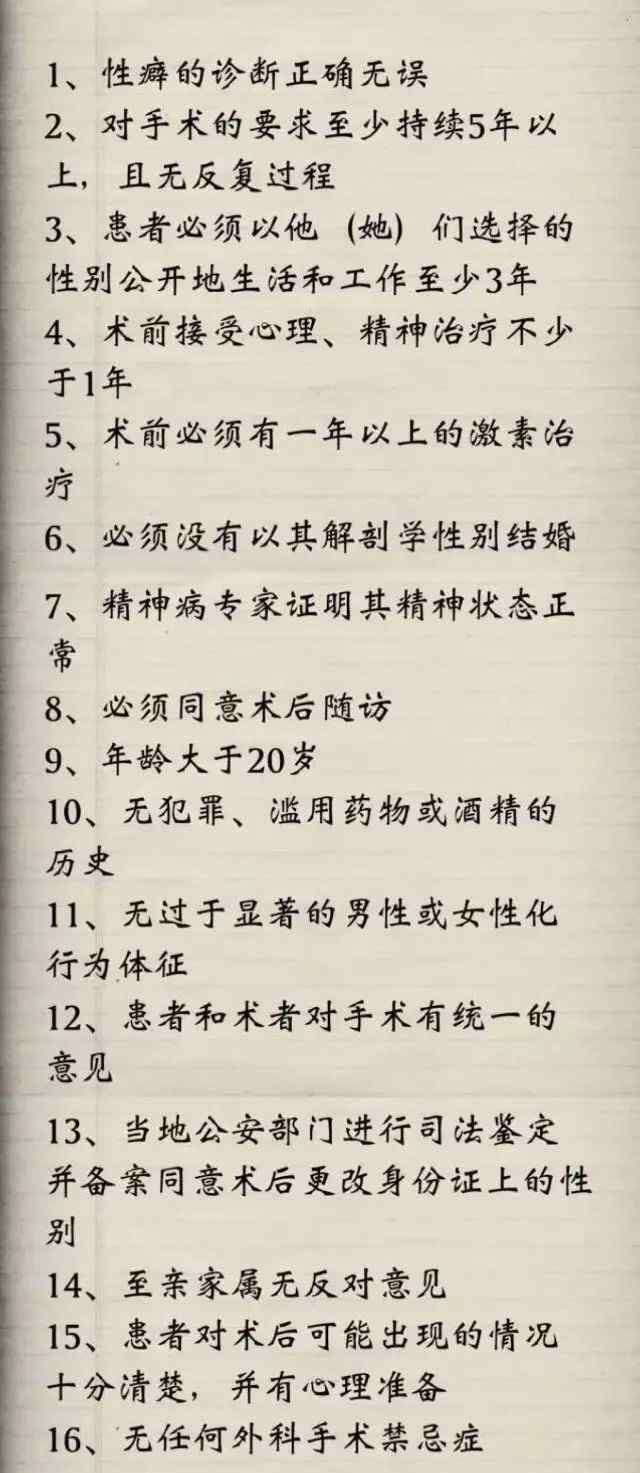 1、性癖的诊断正确无误
2、对手术的要求至少持续5年以
上，且无反复过程
3、患者必须以他（她）们选择的
性别公开地生活和工作至少3年
4、术前接受心理、精神治疗不少
于1年
5、术前必须有一年以上的激素治
疗
6、必须没有以其解剖学性别结婚
7、精神病专家证明其精神状态正
常
8、必须同意术后随访
9、年龄大于20岁
10、无犯罪、滥用药物或酒精的
历史
11、无过于显著的男性或女性化
行为体征
12、患者和术者对手术有统一的
意见
13、当地公安部门进行司法鉴定
并备案同意术后更改身份证上的性
别
14、至亲家属无反对意见
15、患者对术后可能出现的情况
十分清楚，并有心理准备
16、无任何外科手术禁忌症